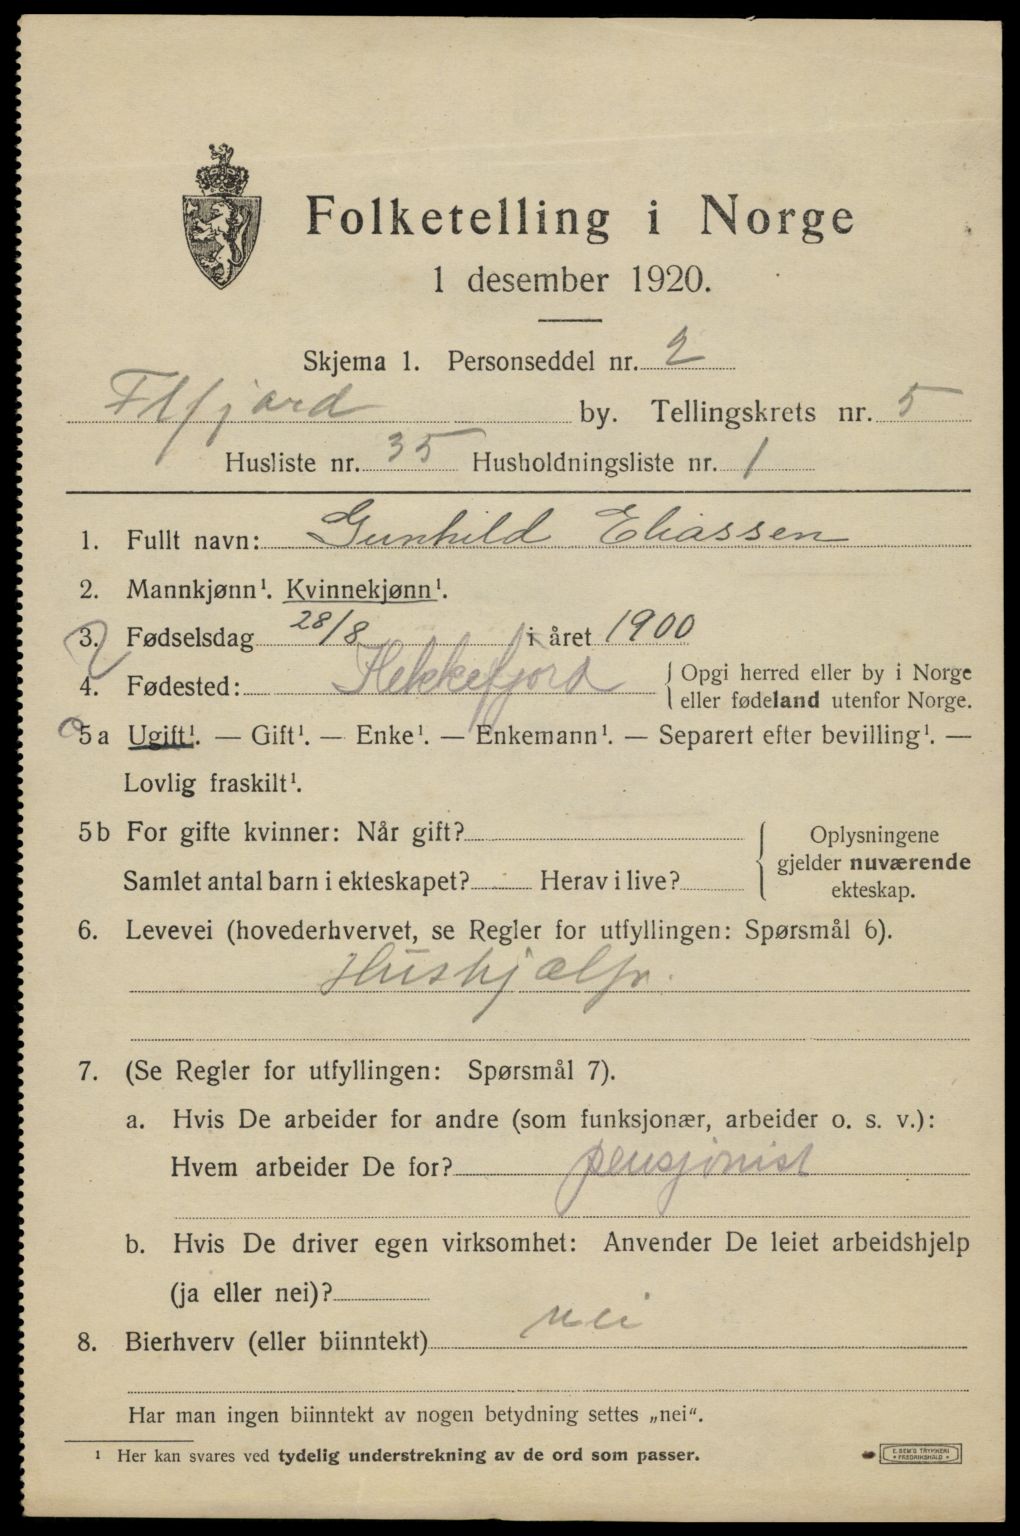 Folketelling i Norge
1 desember 1920.
Skjema 1. Personseddel nr. 2
Flfjord by. Tellingskrets nr. 5
Husliste nr. 35 Husholdningsliste nr. 1
1. Fullt navn: Gunhild Eliassen
2. Mannkjønn¹. Kvinnekjønn¹.
3. Fødselsdag 28/8 i året 1900
4. Fødested: Flekkefjord { Opgi herred eller by i Norge
eller fødeland utenfor Norge.
5a Ugift¹. — Gift¹. — Enke¹. — Enkemann¹. — Separert efter bevilling¹. —
Lovlig fraskilt¹.
5b For gifte kvinner: Når gift?
Samlet antal barn i ekteskapet? Herav i live?
{ Oplysningene
gjelder nuværende
ekteskap.
6. Levevei (hovederhvervet, se Regler for utfyllingen: Spørsmål 6).
Hushjælp.
7. (Se Regler for utfyllingen: Spørsmål 7).
a. Hvis De arbeider for andre (som funksjonær, arbeider o. s. v.):
Hvem arbeider De for? pensjonist
b. Hvis De driver egen virksomhet: Anvender De leiet arbeidshjelp
(ja eller nei)?
8. Bierhverv (eller biinntekt) nei
Har man ingen biinntekt av nogen betydning settes „nei“.
¹ Her kan svares ved tydelig understrekning av de ord som passer.
E. SEM'S TRYKKERI
FREDRIKSHALD